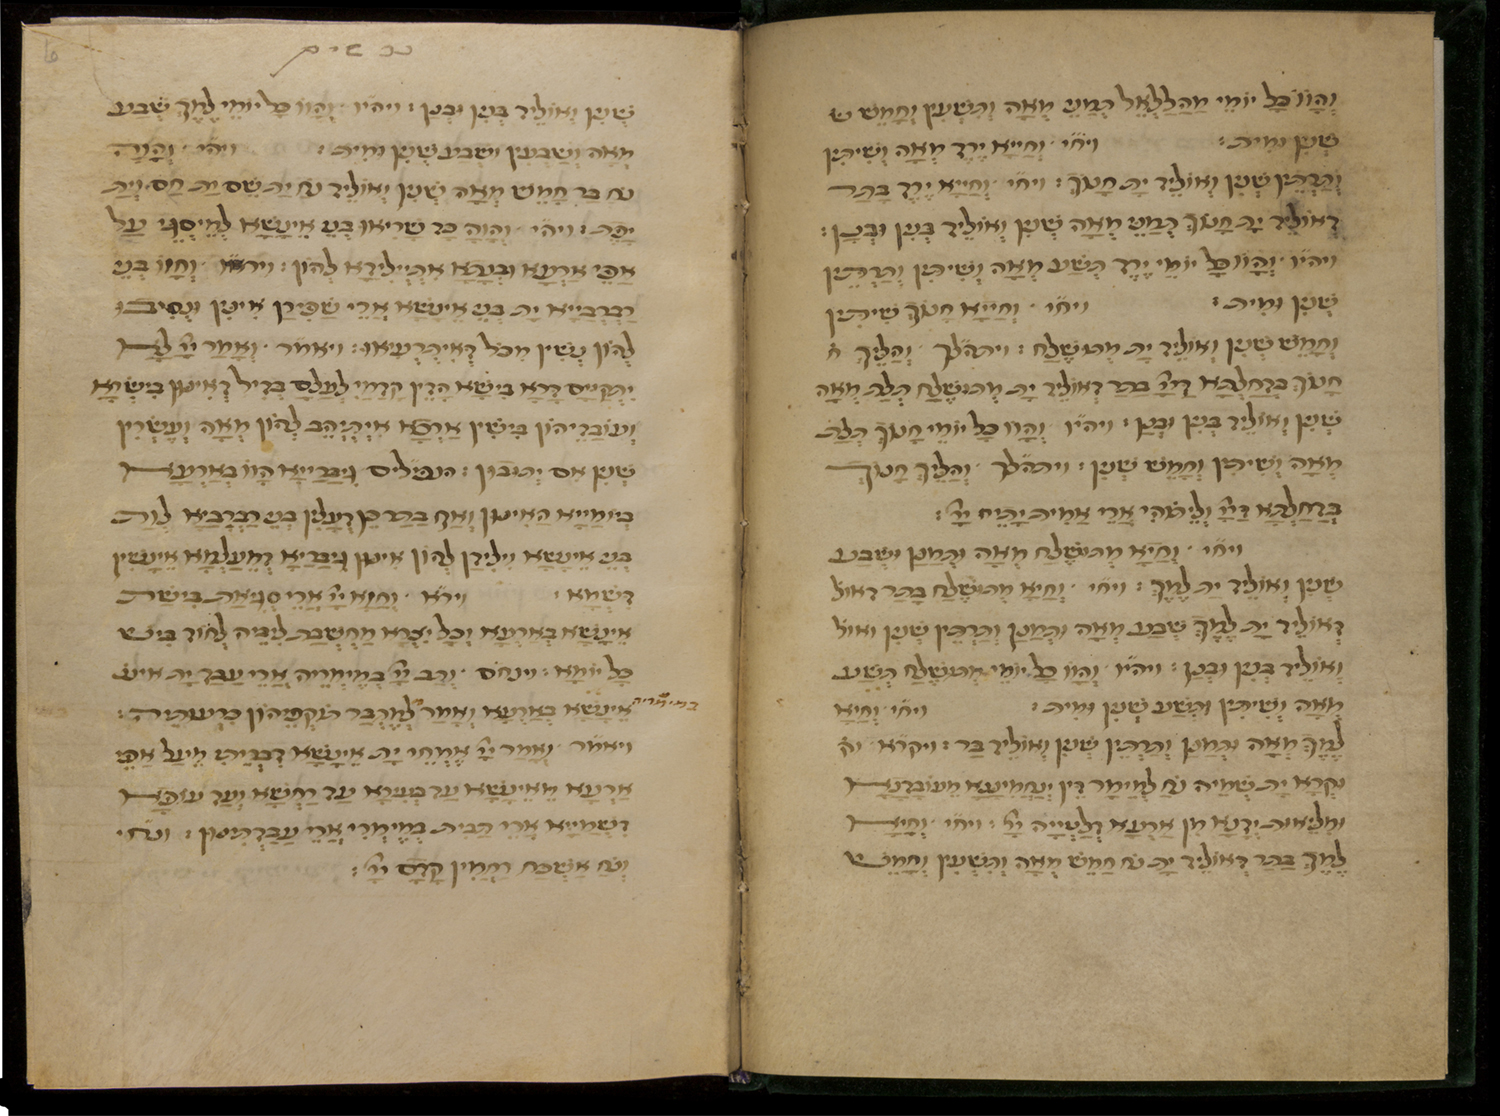 והוו כל יומי מהללאל תמני מאה ותשעין וחמש ש
שנין ומית׃ ויחי וחייא ירד מאה ושיתין
ותרתין שנין ואוליד ית חנוך׃ ויחי וחייא ירד בתר
דאוליד ית חנוך תמני מאה שנין ואוליד בנין ובנן׃
ויהיו והוו כל יומי ירד תשע מאה ושיתין ותרתין
שנין ומית׃ ויחי וחייא חנוך שיתין
וחמש שנין ואוליד ית מתושלח׃ ויתהלך והליך ח
חנוך בדחלתא דיי בתר דאוליד ית מתושלח תלת מאה
שנין ואוליד בנין ובנן׃ ויהיו והוו כל יומי חנוך תלת
מאה ושיתין וחמש שנין׃ ויתהלך והליך חנוך
בדחלתא דיי וליתוהי ארי אמית יתיה יי׃
ויחי וחיא מתושלח מאה ותמנן ושבע
שנין ואוליד ית למך׃ ויחי וחיא מתושלח בתר דאול
דאוליד ית למך שבע מאה ותמנן ותרתין שנין ואול
ואוליד בנין ובנן׃ ויהיו והוו כל יומי מתושלח תשע
מאה ושיתין ותשע שנין ומית׃ ויחי וחיא
למך מאה ותמנן ותרתין שנין ואוליד בר׃ ויקרא וק
וקרא ית שמיה נח למימר דין ינחמיננא מעובדנא
ומליאות ידנא מן ארעא דלטייה יי׃ ויחי וחייא
למך בתר דאוליד ית נח חמש מאה ותשעין וחמש
שנין ואוליד בנין ובנן׃ ויהיו והוו כל יומי למך שבע
מאה ושבעין ושבע שנין ומית׃ ויהי והוה
נח בר חמש מאה שנין ואוליד נח ית שם ית חם וית
יפת׃ ויהי והוה כד שריאו בני אינשא למיסגי על
אפי ארעא ובנתא אתילידא להון׃ ויראו וחזו בני
רברבייא ית בנת אינשא ארי שפירן אינין ונסיבו
להון נשין מכל דאיתרעיאו׃ ויאמר ואמר יי לא
יתקיים דרא בישא הדין קדמי לעלם בדיל דאינון בישרא
ועובדיהון בישין ארכא איתיהב להון מאה ועשרין
שנין אם יתובון׃ הנפילים גיברייא הוו בארעא
ביומייא האינון ואף בתר כן דעלין בני רברביא לות
בנת אינשא וילידן להון אינון גיבריא דמעלמא אינשין
דשמא׃ וירא וחזא יי ארי סגיאת בישת
אינשא בארעא וכל יצרא מחשבת ליביה לחוד ביש
כל יומא׃ וינחם ותב יי במימריה ארי עבד ית אינש
אינשא בארעא ואמר למתבר תוקפיהון כרעותיה׃
במימריה
ויאמר ואמר יי אמחי ית אינשא דבריתי מיעל אפי
ארעא מאינשא עד בעירא עד רחשא ועד עופא
דשמייא ארי תבית במימרי ארי עבדתינון׃ ונח
ונח אשכח רחמין קדם יי׃